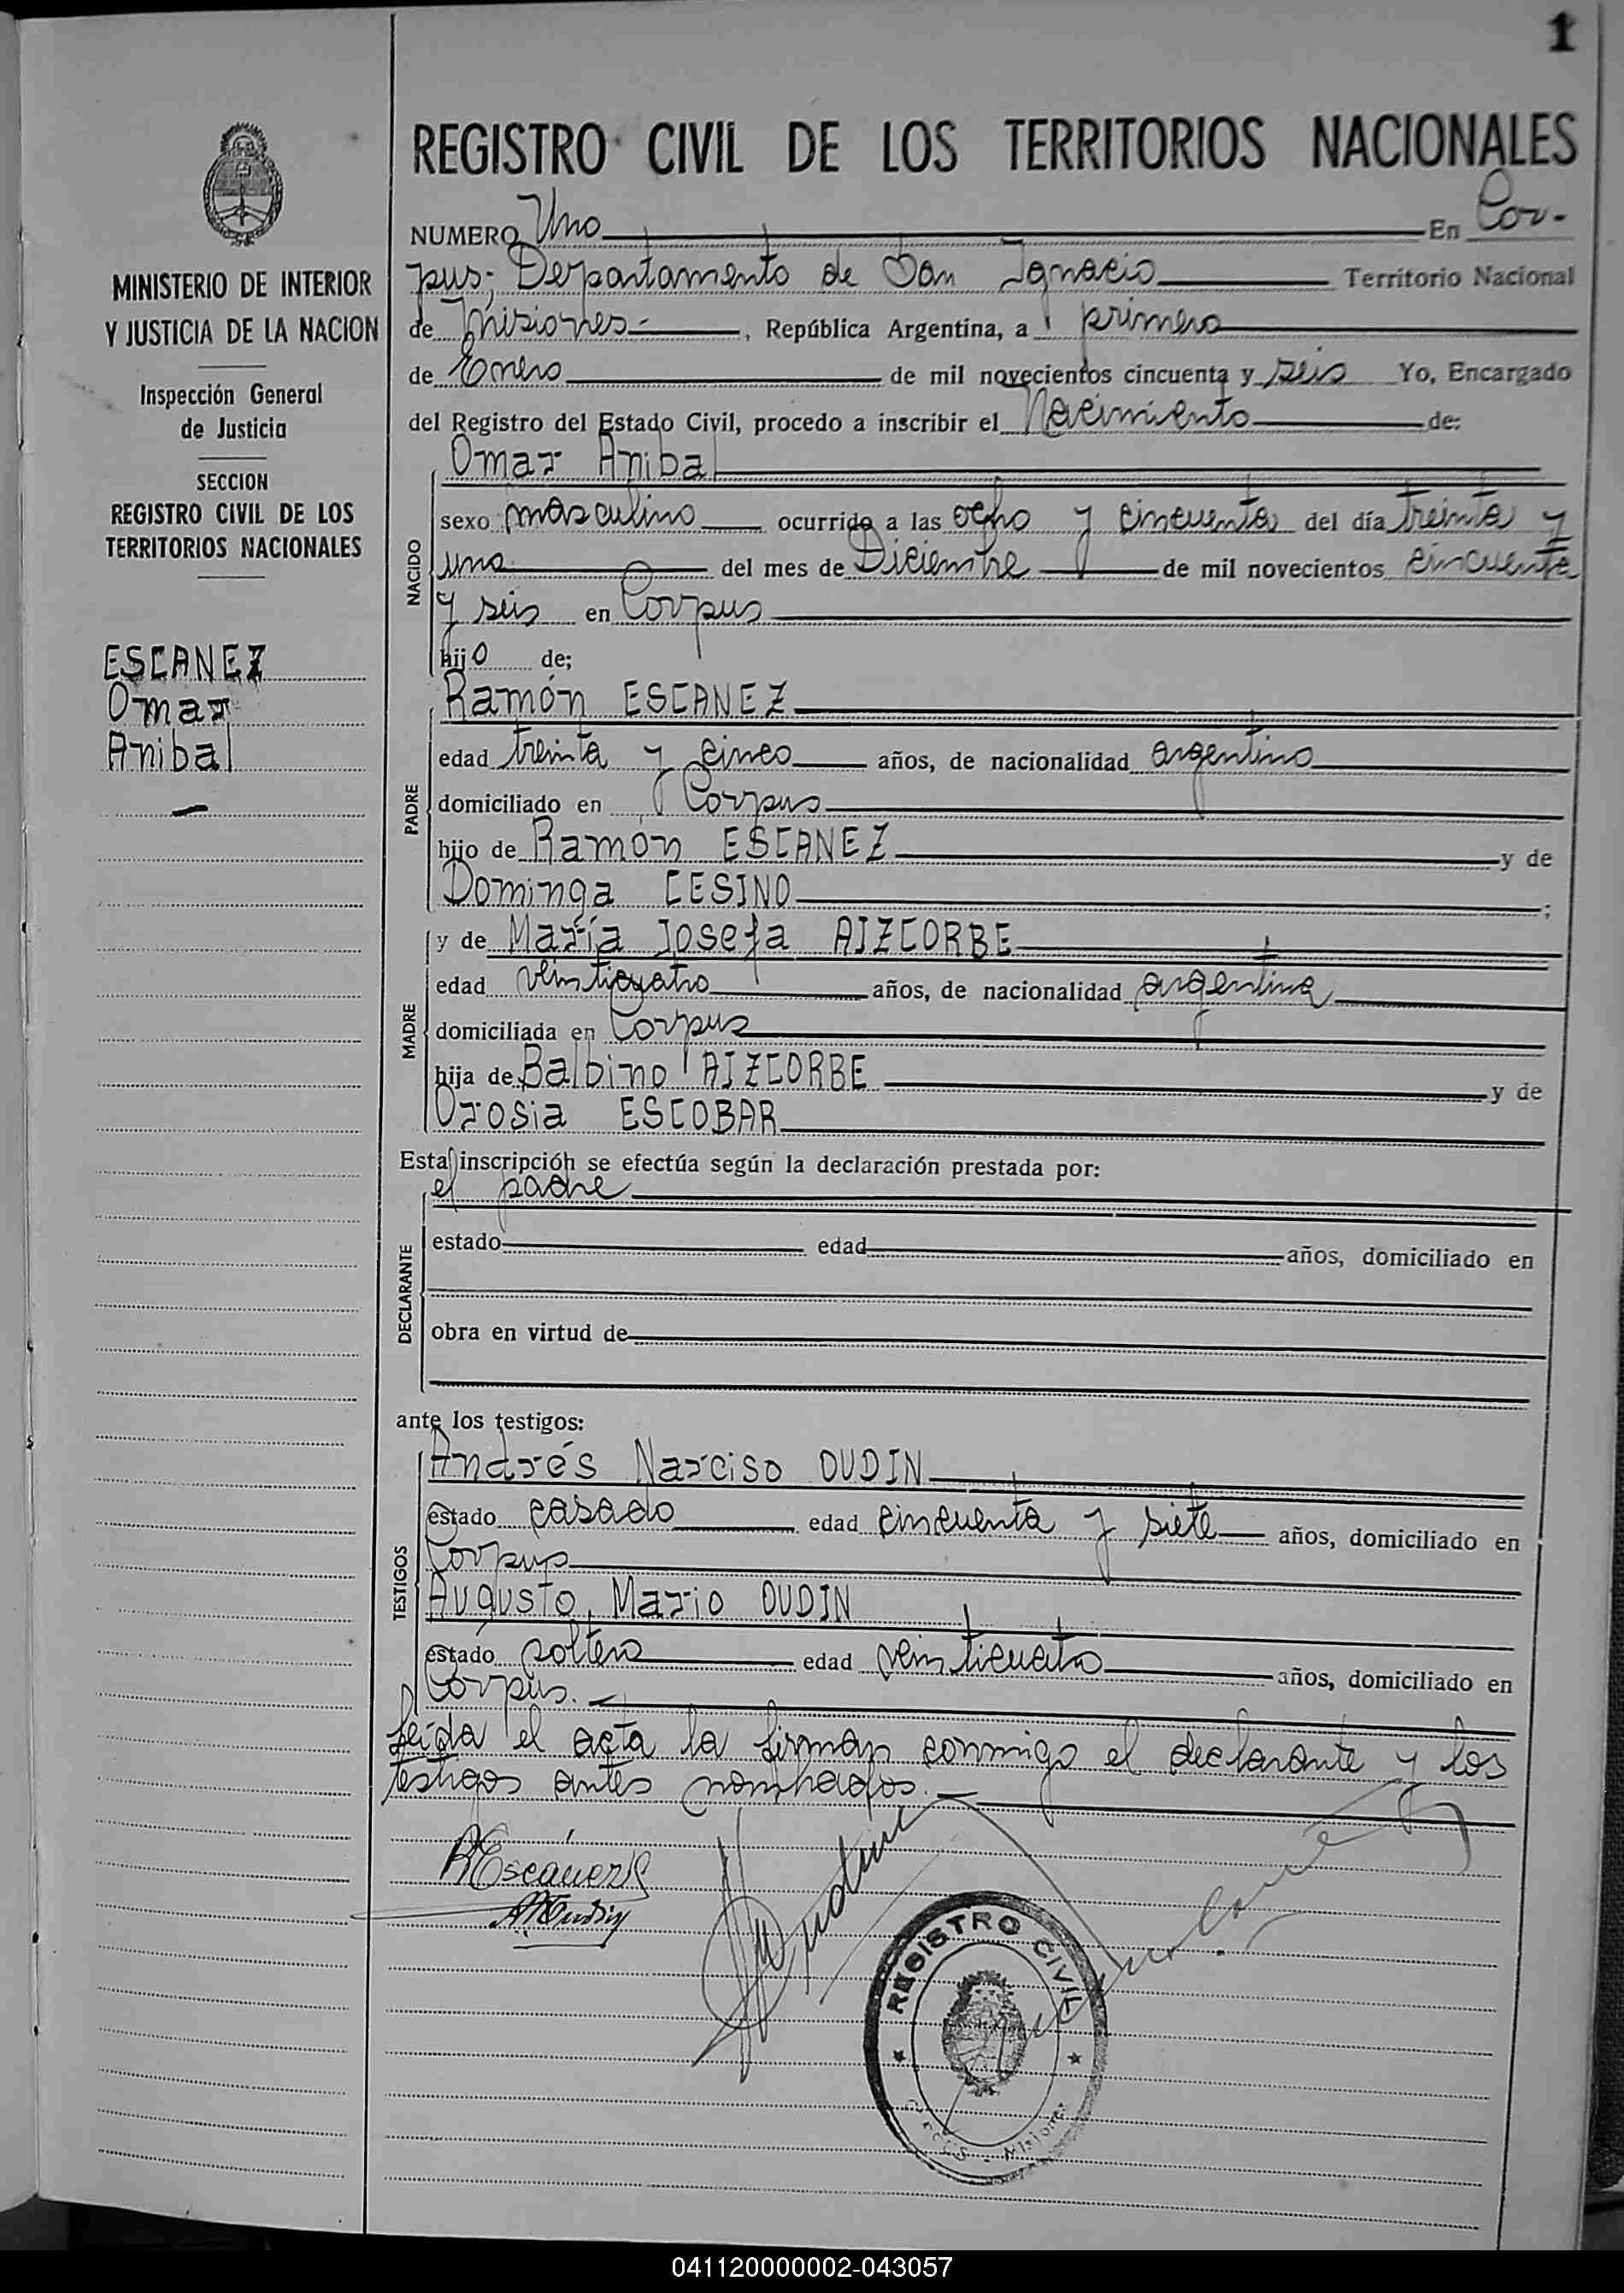 1
REGISTRO CIVIL DE LOS TERRITORIOS NACIONALES
MINISTERIO DE INTERIOR
Y JUSTICIA DE LA NACION
Inspección General
de Justicia
SECCION
REGISTRO CIVIL DE LOS
TERRITORIOS NACIONALES
ESCANEZ
Omar
Anibal
NUMERO Uno En Cor-
pus; Departamento de San Ignacio Territorio Nacional
de Misiones.-, República Argentina, a primero
de Enero de mil novecientos cincuenta y seis Yo, Encargado
del Registro del Estado Civil, procedo a inscribir el Nacimiento de:
NACIDO
Omar Anibal
sexo masculino ocurrido a las ocho y cincuenta del día treinta y
uno del mes de Diciembre de mil novecientos cincuenta
y seis en Corpus
hijo de;
PADRE
Ramón ESCANEZ
edad treinta y cinco años, de nacionalidad argentino
domiciliado en Corpus
hijo de Ramón ESCANEZ y de
Dominga CESINO ;
MADRE
y de María Josefa AIZCORBE
edad veinticuatro años, de nacionalidad argentina
domiciliada en Corpus
hija de Balbino AIZCORBE y de
Orosia ESCOBAR
Esta inscripción se efectúa según la declaración prestada por:
DECLARANTE
el padre
estado edad años, domiciliado en
obra en virtud de
ante los testigos:
TESTIGOS
Andrés Narciso OUDIN
estado casado edad cincuenta y siete años, domiciliado en
Corpus
Augusto Mario OUDIN
estado soltero edad veinticuatro años, domiciliado en
Corpus.
Leída el acta la firman conmigo el declarante y los
testigos antes nombrados.
R Escánez
REGISTRO CIVIL
Misiones
041120000002-043057